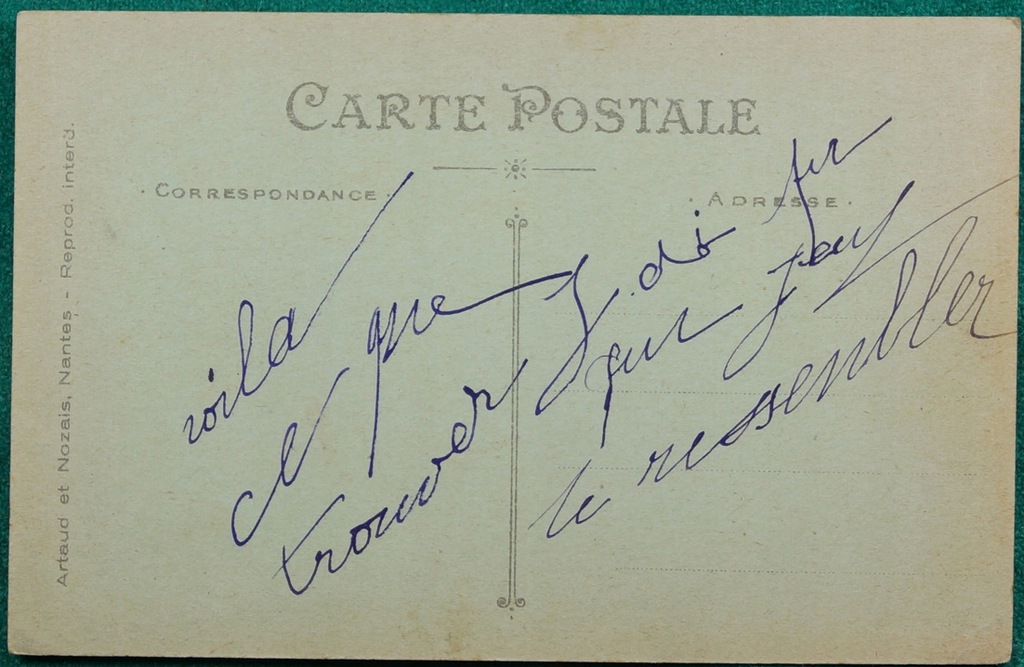 CARTE POSTALE
· CORRESPONDANCE ·
· ADRESSE ·
voilà
ce que
trouver
qui
le ressembler
Artaud et Nozais, Nantes - Reprod. interd.